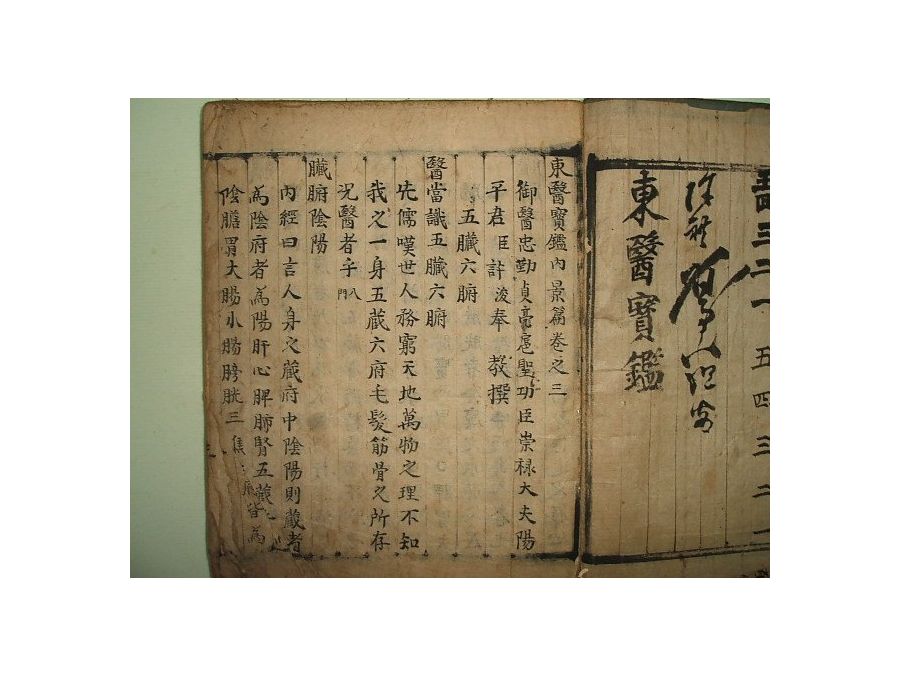 三二一 五四三二一
東醫寶鑑
東醫寶鑑內景篇卷之三
御醫忠勤貞亮扈聖功臣崇祿大夫陽
平君臣許浚奉 教撰
五臟六腑
醫當識五臟六腑
先儒嘆世人務窮天地萬物之理不知
我之一身五藏六府毛髮筋骨之所存
况醫者乎 入門
臟腑陰陽
內經曰言人身之藏府中陰陽則藏者
為陰府者為陽肝心脾肺腎五藏皆為
陰膽胃大腸小腸膀胱三焦